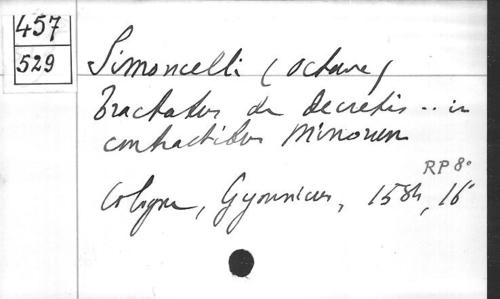 457
529
Simoncelli (Octave)
Tractatus de Decretis .. in
contractibus Minorum
RP 8°
Cologne, Gymnicus, 1584, 16°